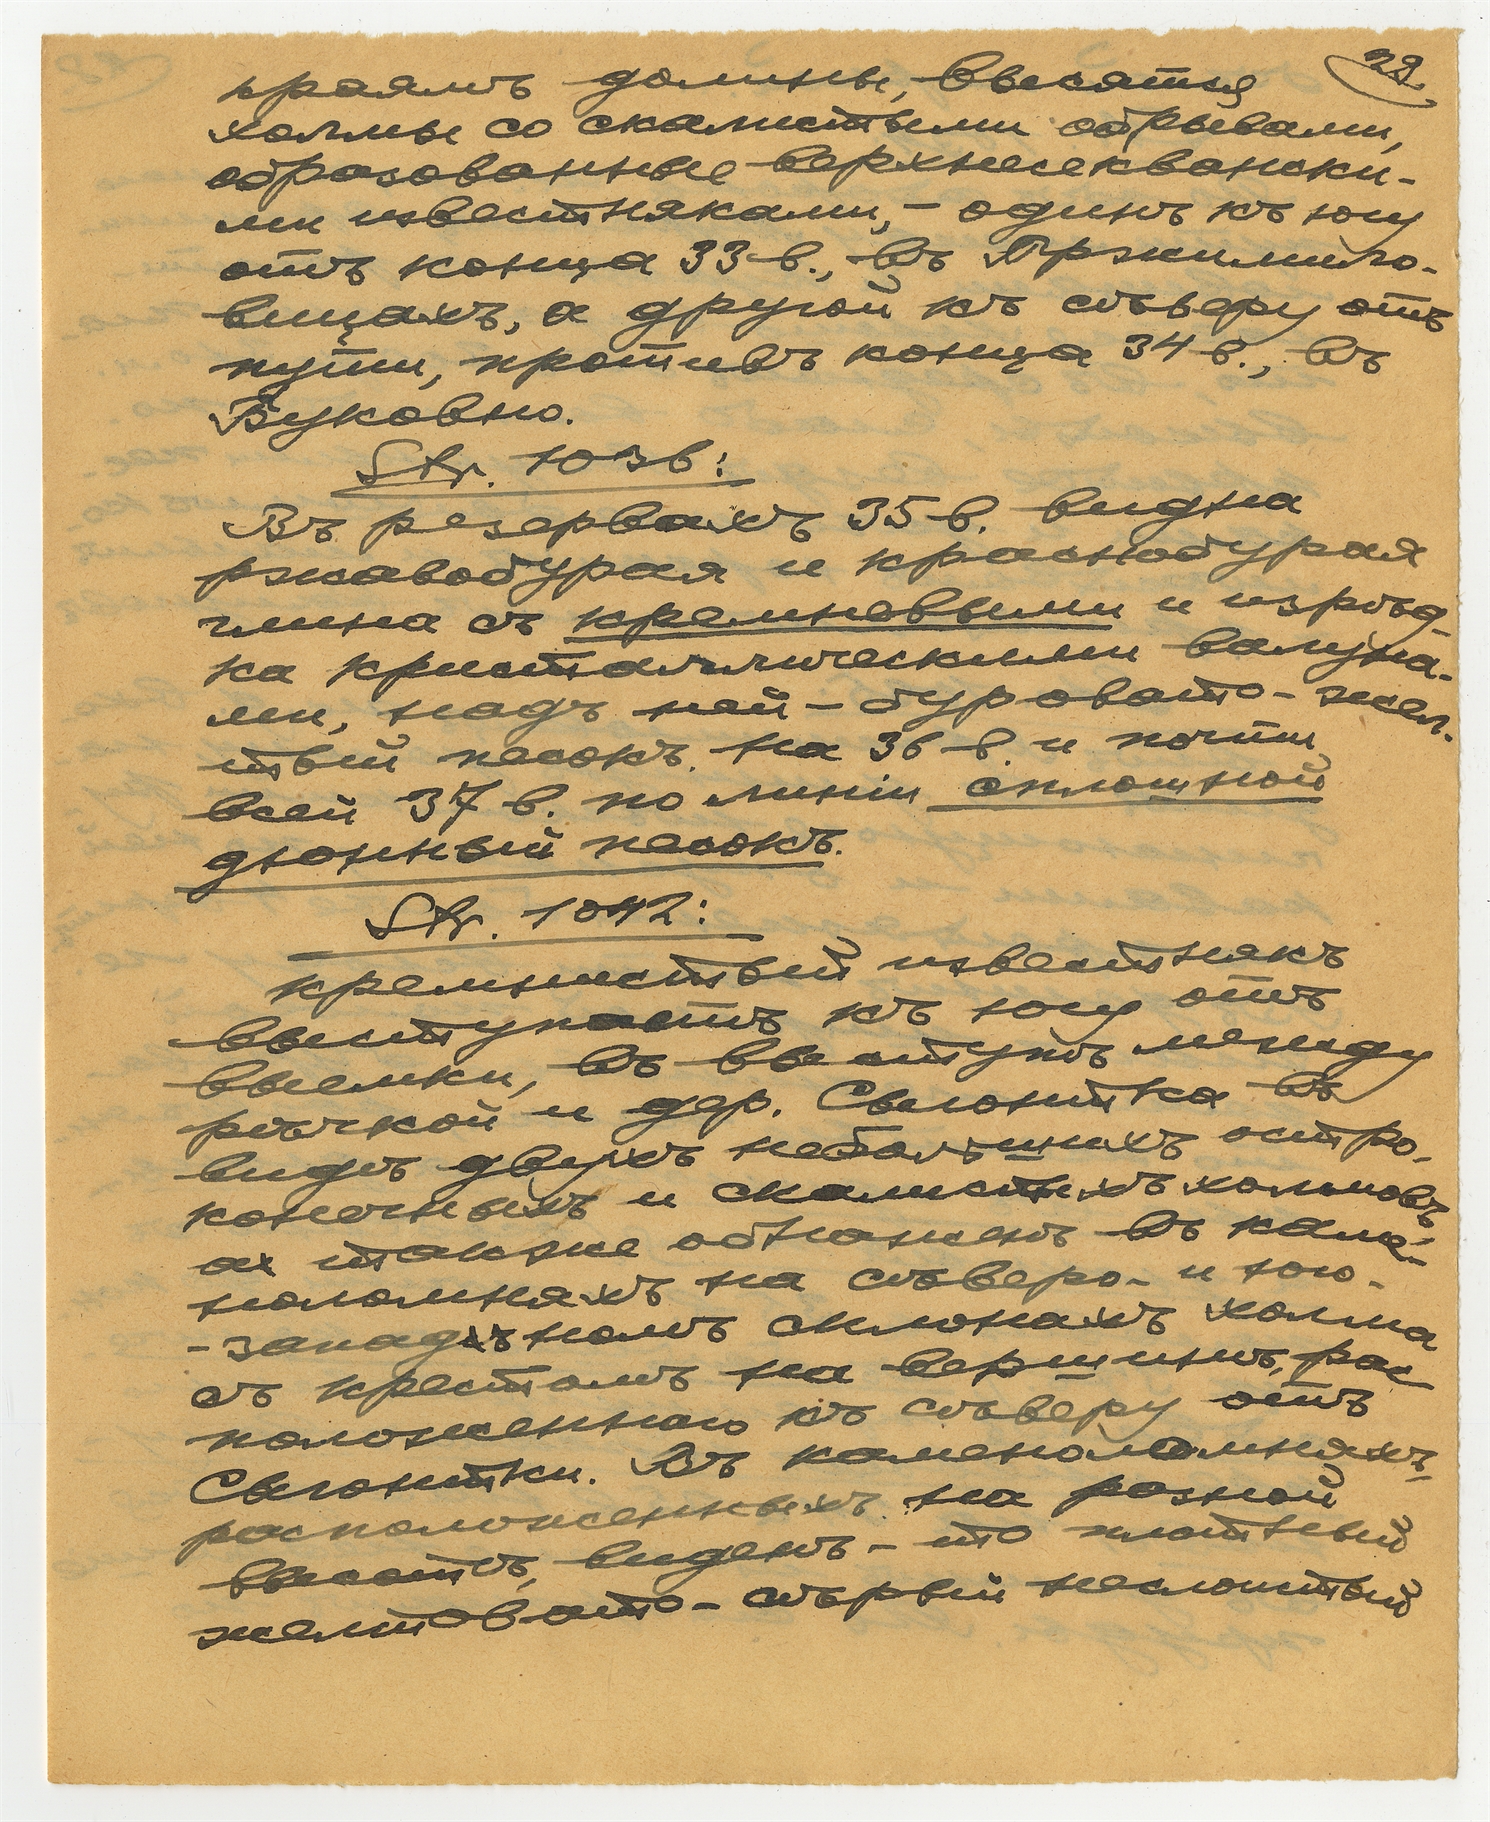 29.
краямъ долины, высятся
холмы со скалистыми обрывами,
образованные верхнесеквански-
ми известняками, - одинъ къ югу
отъ конца 33 в., въ Пржимило-
вицахъ, а другой къ сѣверу отъ
пути, противъ конца 34 в., въ
Буковно.
Str. 1036:
Въ резервахъ 35 в. видна
ржавобурая и краснобурая
глина съ кремневыми и изрѣд-
ка кристаллическими валуна-
ми, надъ ней - буровато-жел-
тый песокъ. На 36 в. и почти
всей 37 в. по линіи сплошной
дюнный песокъ.
Str. 1042:
Кремнистый известнякъ
выступаетъ къ югу отъ
выемки, въ выступѣ между
рѣчкой и дер. Свіонтка въ
видѣ двухъ небольшихъ остро-
конечныхъ и скалистыхъ холмовъ,
а также обнаженъ въ каме-
ноломняхъ на сѣверо- и юго-
-западномъ склонахъ холма
съ крестомъ на вершинѣ, рас
положенного къ сѣверу отъ
Свіонтки. Въ каменоломняхъ,
расположенныхъ на разной
высотѣ, виденъ - то плотный
желтовато-сѣрый неслоистый